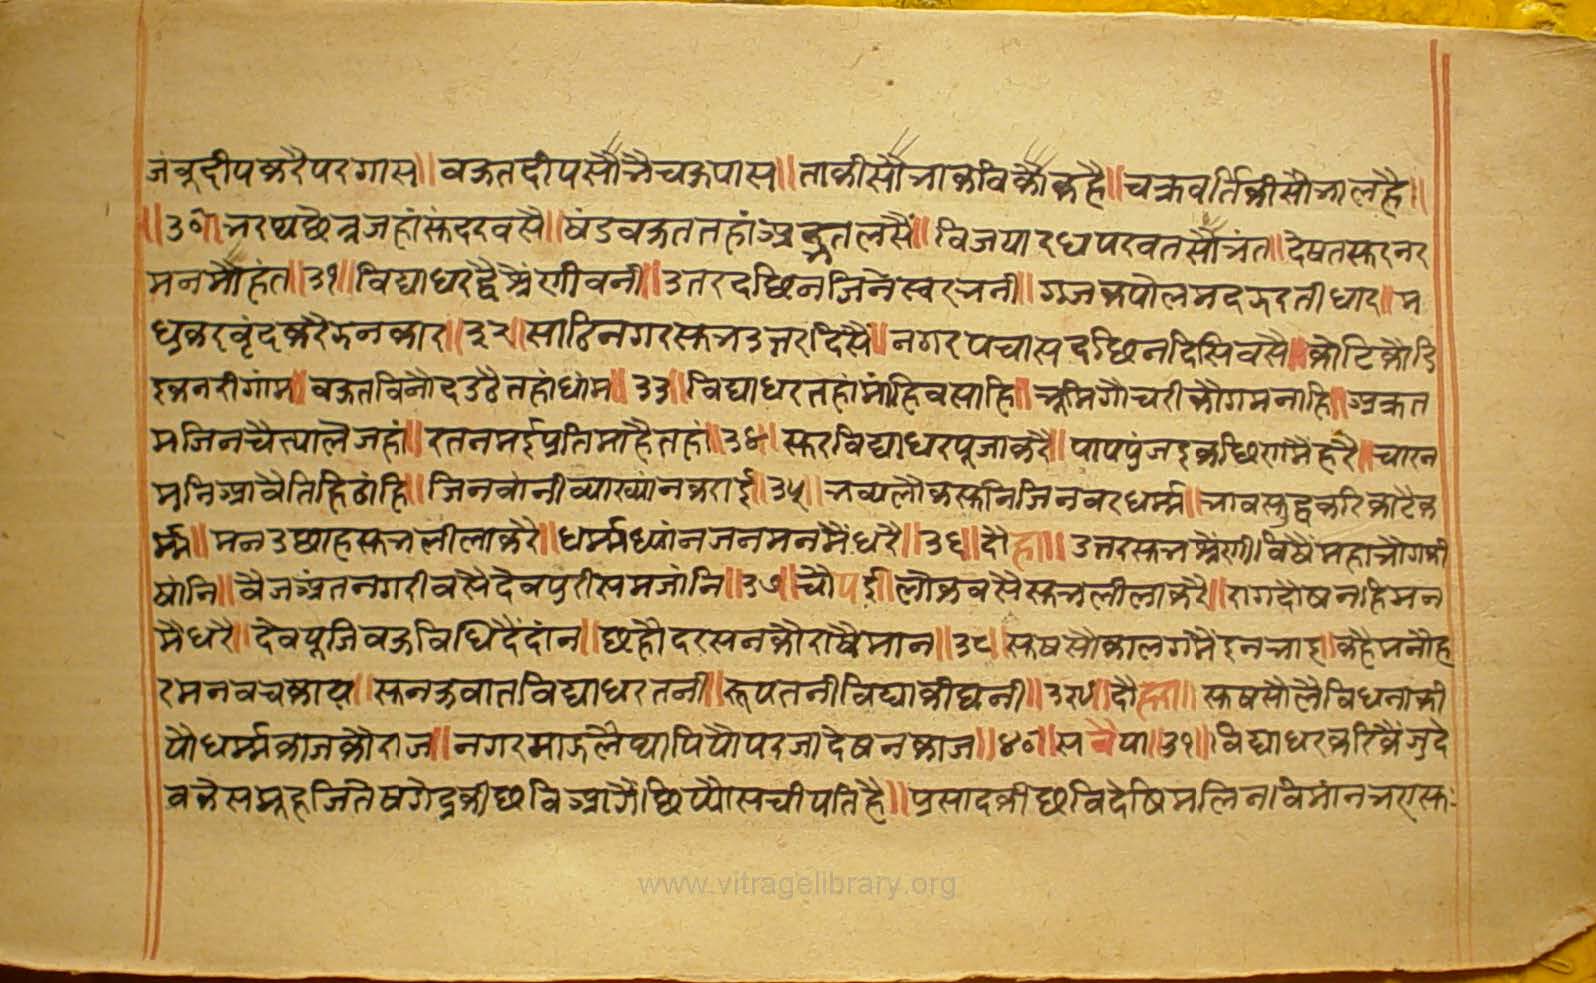 जंबूदीपकरैपरगास॥ वऊतदीपसौभैचऊपास॥ ताकीसौभाकविकौकहै॥ चक्रवर्तिकीसौभालहै॥
॥३०॥ भरथछैत्रजहांसुंदरवसै॥ षंडवऊततहांअद्भुतलसैं॥ विजयारधपरवतसौभंत॥ देषतसुरनर
मनमौहंत॥३१॥ विद्याधरद्वैश्रैंणीवनी॥ उतरदछिनजिनेस्वरभनी॥ गजकपौलमदझरतीधार॥ म
धुकरवृंदकरैझनकार॥३२॥ साठिनगरसुभउत्तरदिसैं॥ नगरपचासदछिनदिसिवसै॥ कौटिकौडि
इकनरीगांम॥ वऊतविनौदउठैतहांधांम॥३३॥ विद्याधरतहांमांहिवसाहि॥ भूमिगौचरीकौगमनाहि॥ अक्रत
मजिनचैत्यालैजहां॥ रतनमईप्रतिमाहैतहां॥३४॥ सुरविद्याधरपूजाकरै॥ पापपुंजइकछिणमैंहरै॥ चारन
मुनिआवैतिहिठांहि॥ जिनवांनीव्याख्यांनकराई॥३५॥ भव्यलौकसुनिजिनवरधर्म्म॥ भावसुद्धकरिकाटैक
र्म्म॥ मनउछाहसुभलीलाकरै॥ धर्म्मध्यांनजनमनमैंधरै॥३६॥ दौहा॥ उत्तरसुभश्रैंणीविषैंमहाभौगकी
षांनि॥ वैजअंतनगरीवसैदैवपुरीसमजांनि॥३७॥ चौपई॥ लौकवसैसुभलीलाकरै॥ रागदौषनहिमन
मैधरै॥ दैवपूजिवऊविधिदैंदांन॥ छहौदरसनकौराषैमान॥३८॥ सुषसौकालगमैंइनभाइ॥ कहैमनौह
रमनवचकाय॥ सुनऊवातविद्याधरतनी॥ रूपतनीविद्याकीधनी॥३९॥ दौहा॥ सुषसौलैविधनाकी
यौधर्म्मकाजकौराज॥ नगरमाऊलैथापियौपरजादेषनकाज॥४०॥ सवैया॥३१॥ विद्याधरकरिकैंजुदै
वकेसमूहजितैषगैद्रकीछविआगैंछिप्यौसचीपतिहै॥ प्रसादकीछविदेषिमलिनविमांनभएसु
www.vitragelibrary.org